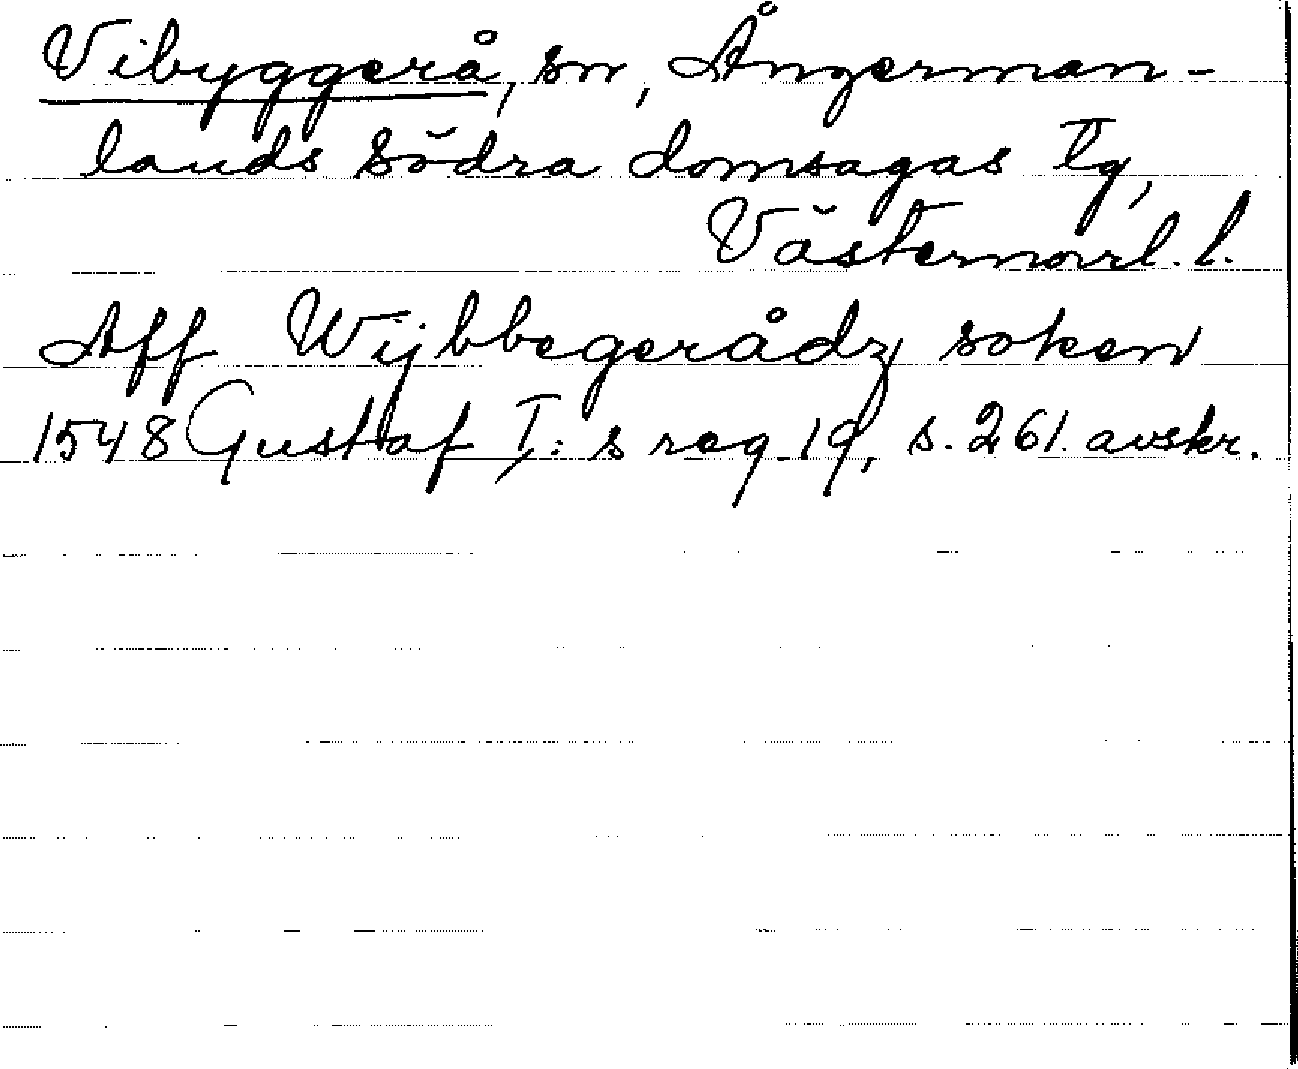 Vibyggerå, sn, Ångerman-
lands södra domsagas tg,
Västernorrl. l.
Aff Wijbbegerådz soken
1548 Gustaf I:s reg 19, s. 261. avskr.